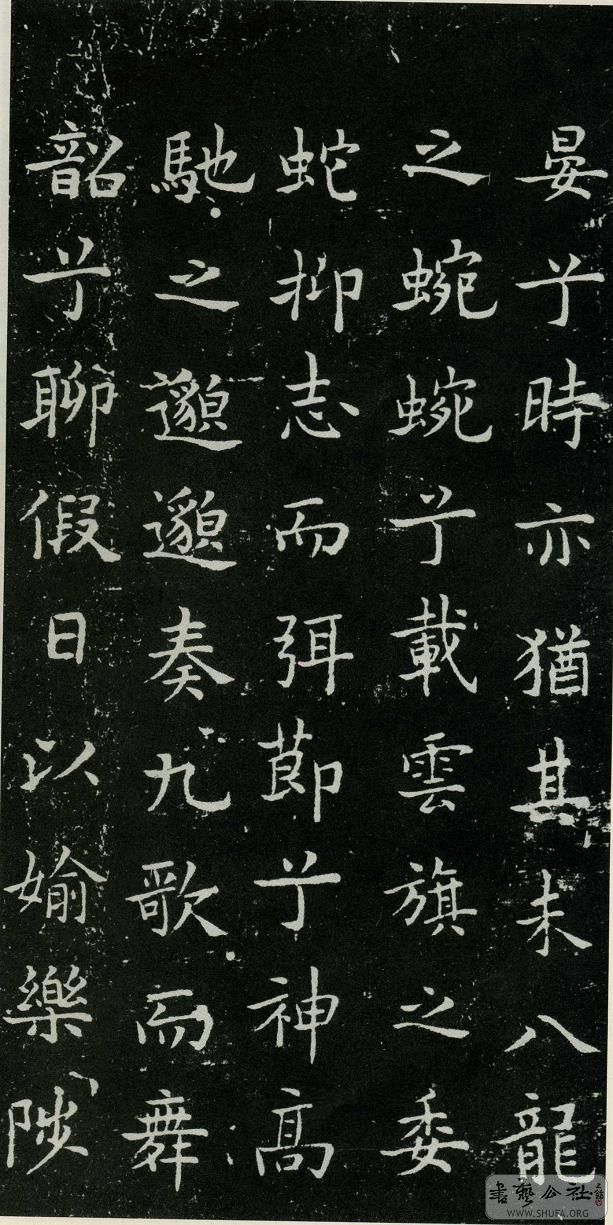 晏兮時亦猶其未八龍
之蜿蜿兮載雲旗之委
蛇抑志而弭節兮神高
馳之邈邈奏九歌而舞
韶兮聊假日以媮樂陟
書藝公社
WWW.SHUFA.ORG